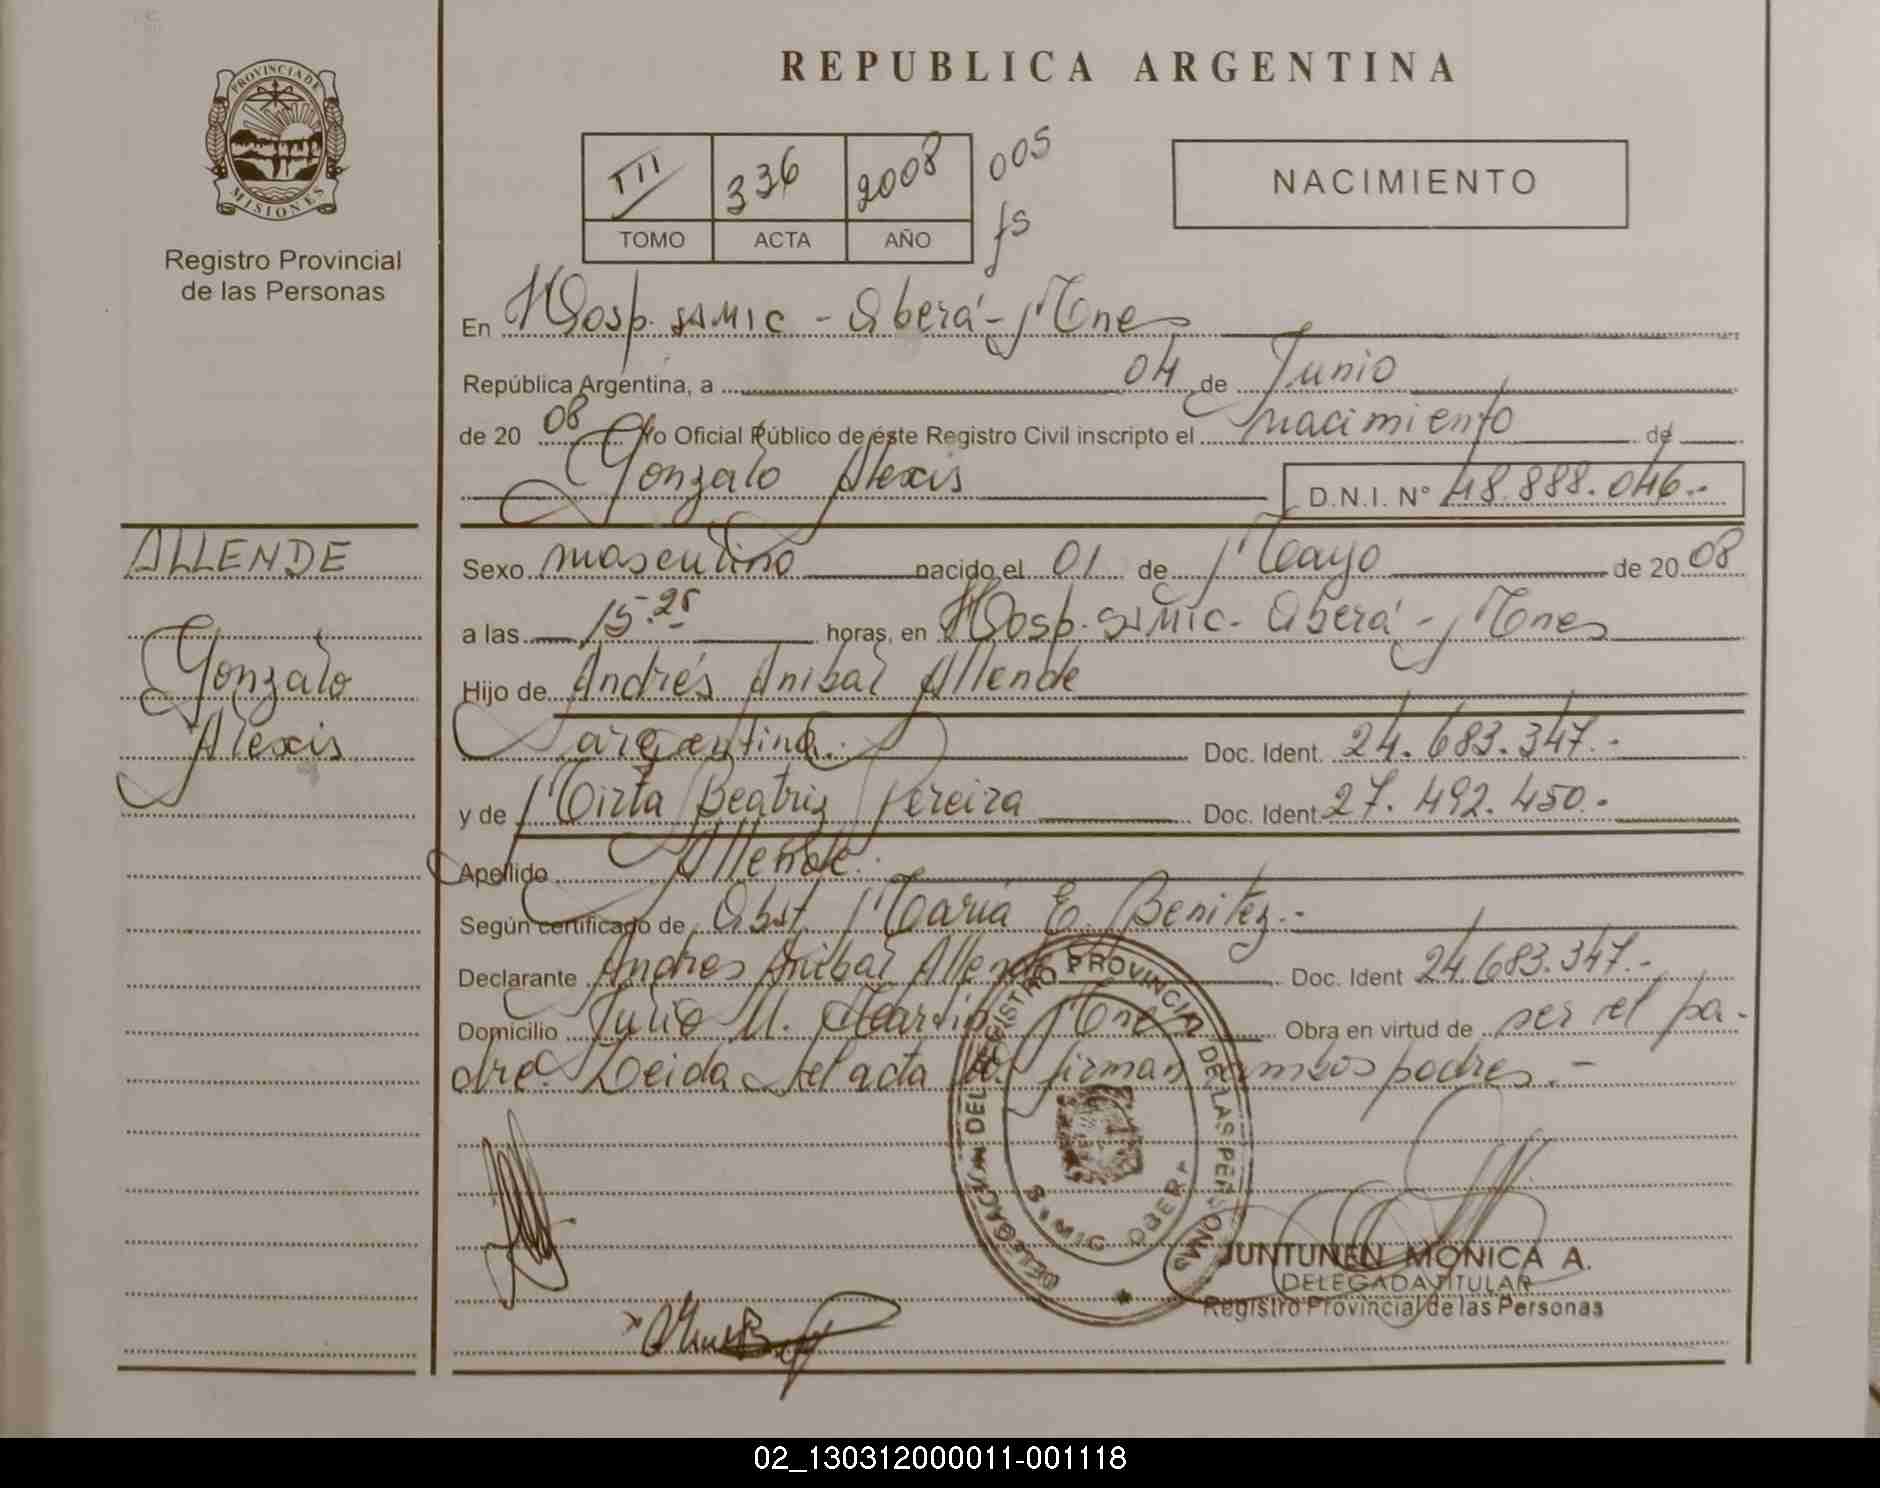 REPUBLICA ARGENTINA
PROVINCIA DE
MISIONES
Registro Provincial
de las Personas
III 336 2008 005
TOMO ACTA AÑO fs
NACIMIENTO
En Hosp. SAMIC - Oberá - Mnes
República Argentina, a 04 de Junio
de 20 08 Yo Oficial Público de éste Registro Civil inscripto el nacimiento de
Gonzalo Alexis D.N.I. N° 48.888.046.-
ALLENDE
Gonzalo
Alexis
Sexo masculino nacido el 01 de Mayo de 20 08
a las 15.25 horas, en Hosp. SAMIC - Oberá - Mnes
Hijo de Andrés Anibal Allende
argentina.- Doc. Ident. 24.683.347.-
y de Mirta Beatriz Pereira Doc. Ident. 27.492.450.-
Apellido Allende.
Según certificado de Obst. María E. Benitez.-
Declarante Andres Anibal Allende Doc. Ident 24.683.347.-
Domicilio Julio U. Martin Mnes Obra en virtud de ser el pa-
dre. Leida el acta la firman ambos padres.-
DELEGACION DEL REGISTRO PROVINCIAL DE LAS PERSONAS
SAMIC OBERA
JUNTUNEN MONICA A.
DELEGADA TITULAR
Registro Provincial de las Personas
02_130312000011-001118